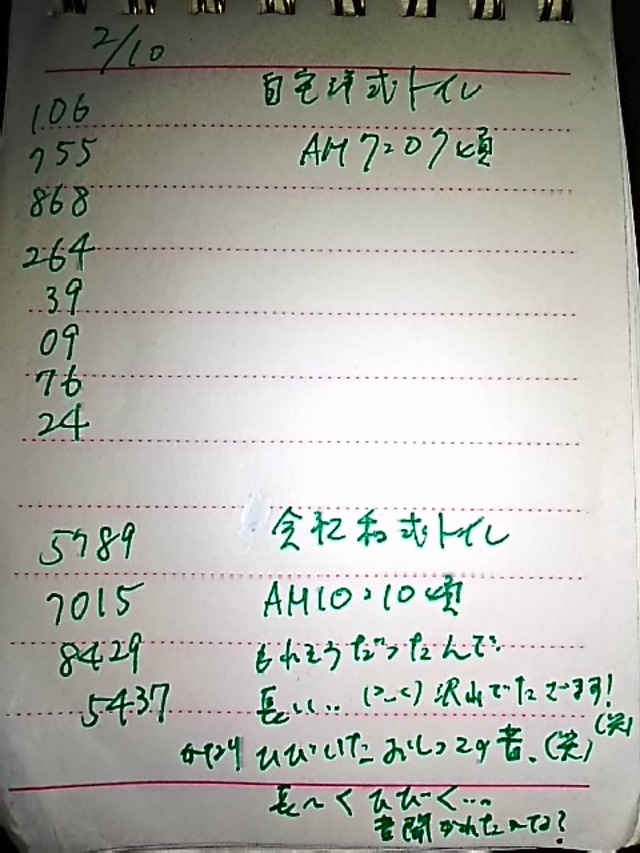 2/10
106 自宅洋式トイレ
755 AM7:07頃
868
264
39
09
76
24
5789 会社和式トイレ
7015 AM10:10頃
8429 もれそうだったんで
5437 長い… 沢山でたでます!
ひびいたおしっこの音、(笑) (笑)
長〜くひびく…
音聞かれたかな?